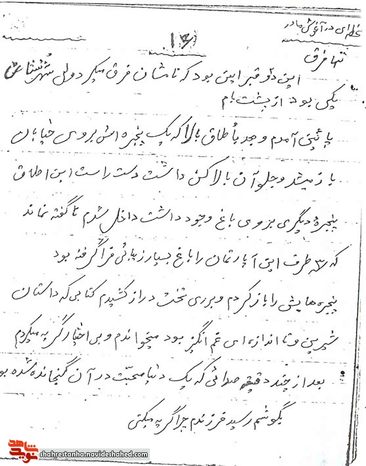 لحظه‌ای در آغوش مادر
۱۶
تنها فرق
این دو قبر این بود که نامشان فرق میکرد ولی شهرتشان
یکی بود از پشت بام
پائین آمدم و جلو باطاق بالا که یک پنجره اش بروی خیابان
باز میشد و جلو آن بالا کن داشت دست راست این اطاق
پنجره دیگری بروی باغ وجود داشت داخل شدم ناگفته نماند
که سه طرف این آپارتمان را باغ بسیار زیبائی فرا گرفته بود
پنجره هایش را باز کردم و بر روی تخت دراز کشیدم کتابی که داستان
شیرین و تا اندازه ای غم انگیز بود میخواندم و بی اختیار گریه میکردم
بعد از چند دقیقه صدائی که یک دنیا محبت در آن گنجانده شده بو
بگوشم رسید فرزندم چرا گریه میکنی
نوید شاهد
shahrestanha.navideshahed.com